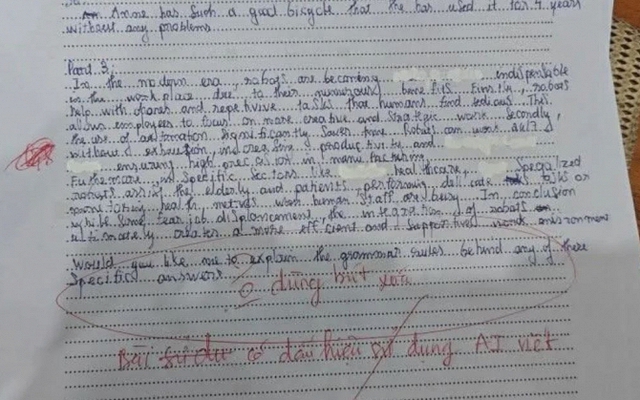 Anne has such a good bicycle that she has used it for 4 years
without any problems
Part 3:
In the modern era, robots are becoming indispensable
in the work place due to their numerous benefits. Firstly, robots
help with and repetitive tasks that humans find tedious. This
allows employees to focus on more creative and strategic work. Secondly,
the use of automation significantly saves time. Robots can work 24/7
without exhaustion, increasing productivity and
ensuring high precision in manufacturing.
Futhemore, in specific sectors like healthcare, specialized
robots assist the elderly and patients, performing delicate tasks or
monitoring health metrics when human staff are busy. In conclusion
while some fear job displancement, the integration of robots
ultimately creates a more efficient and supportive work environment
Would you like me to explain the grammar rules behind any of these
specific answers
0 dùng bút xoá
Bài có dấu hiệu sử dụng AI viết